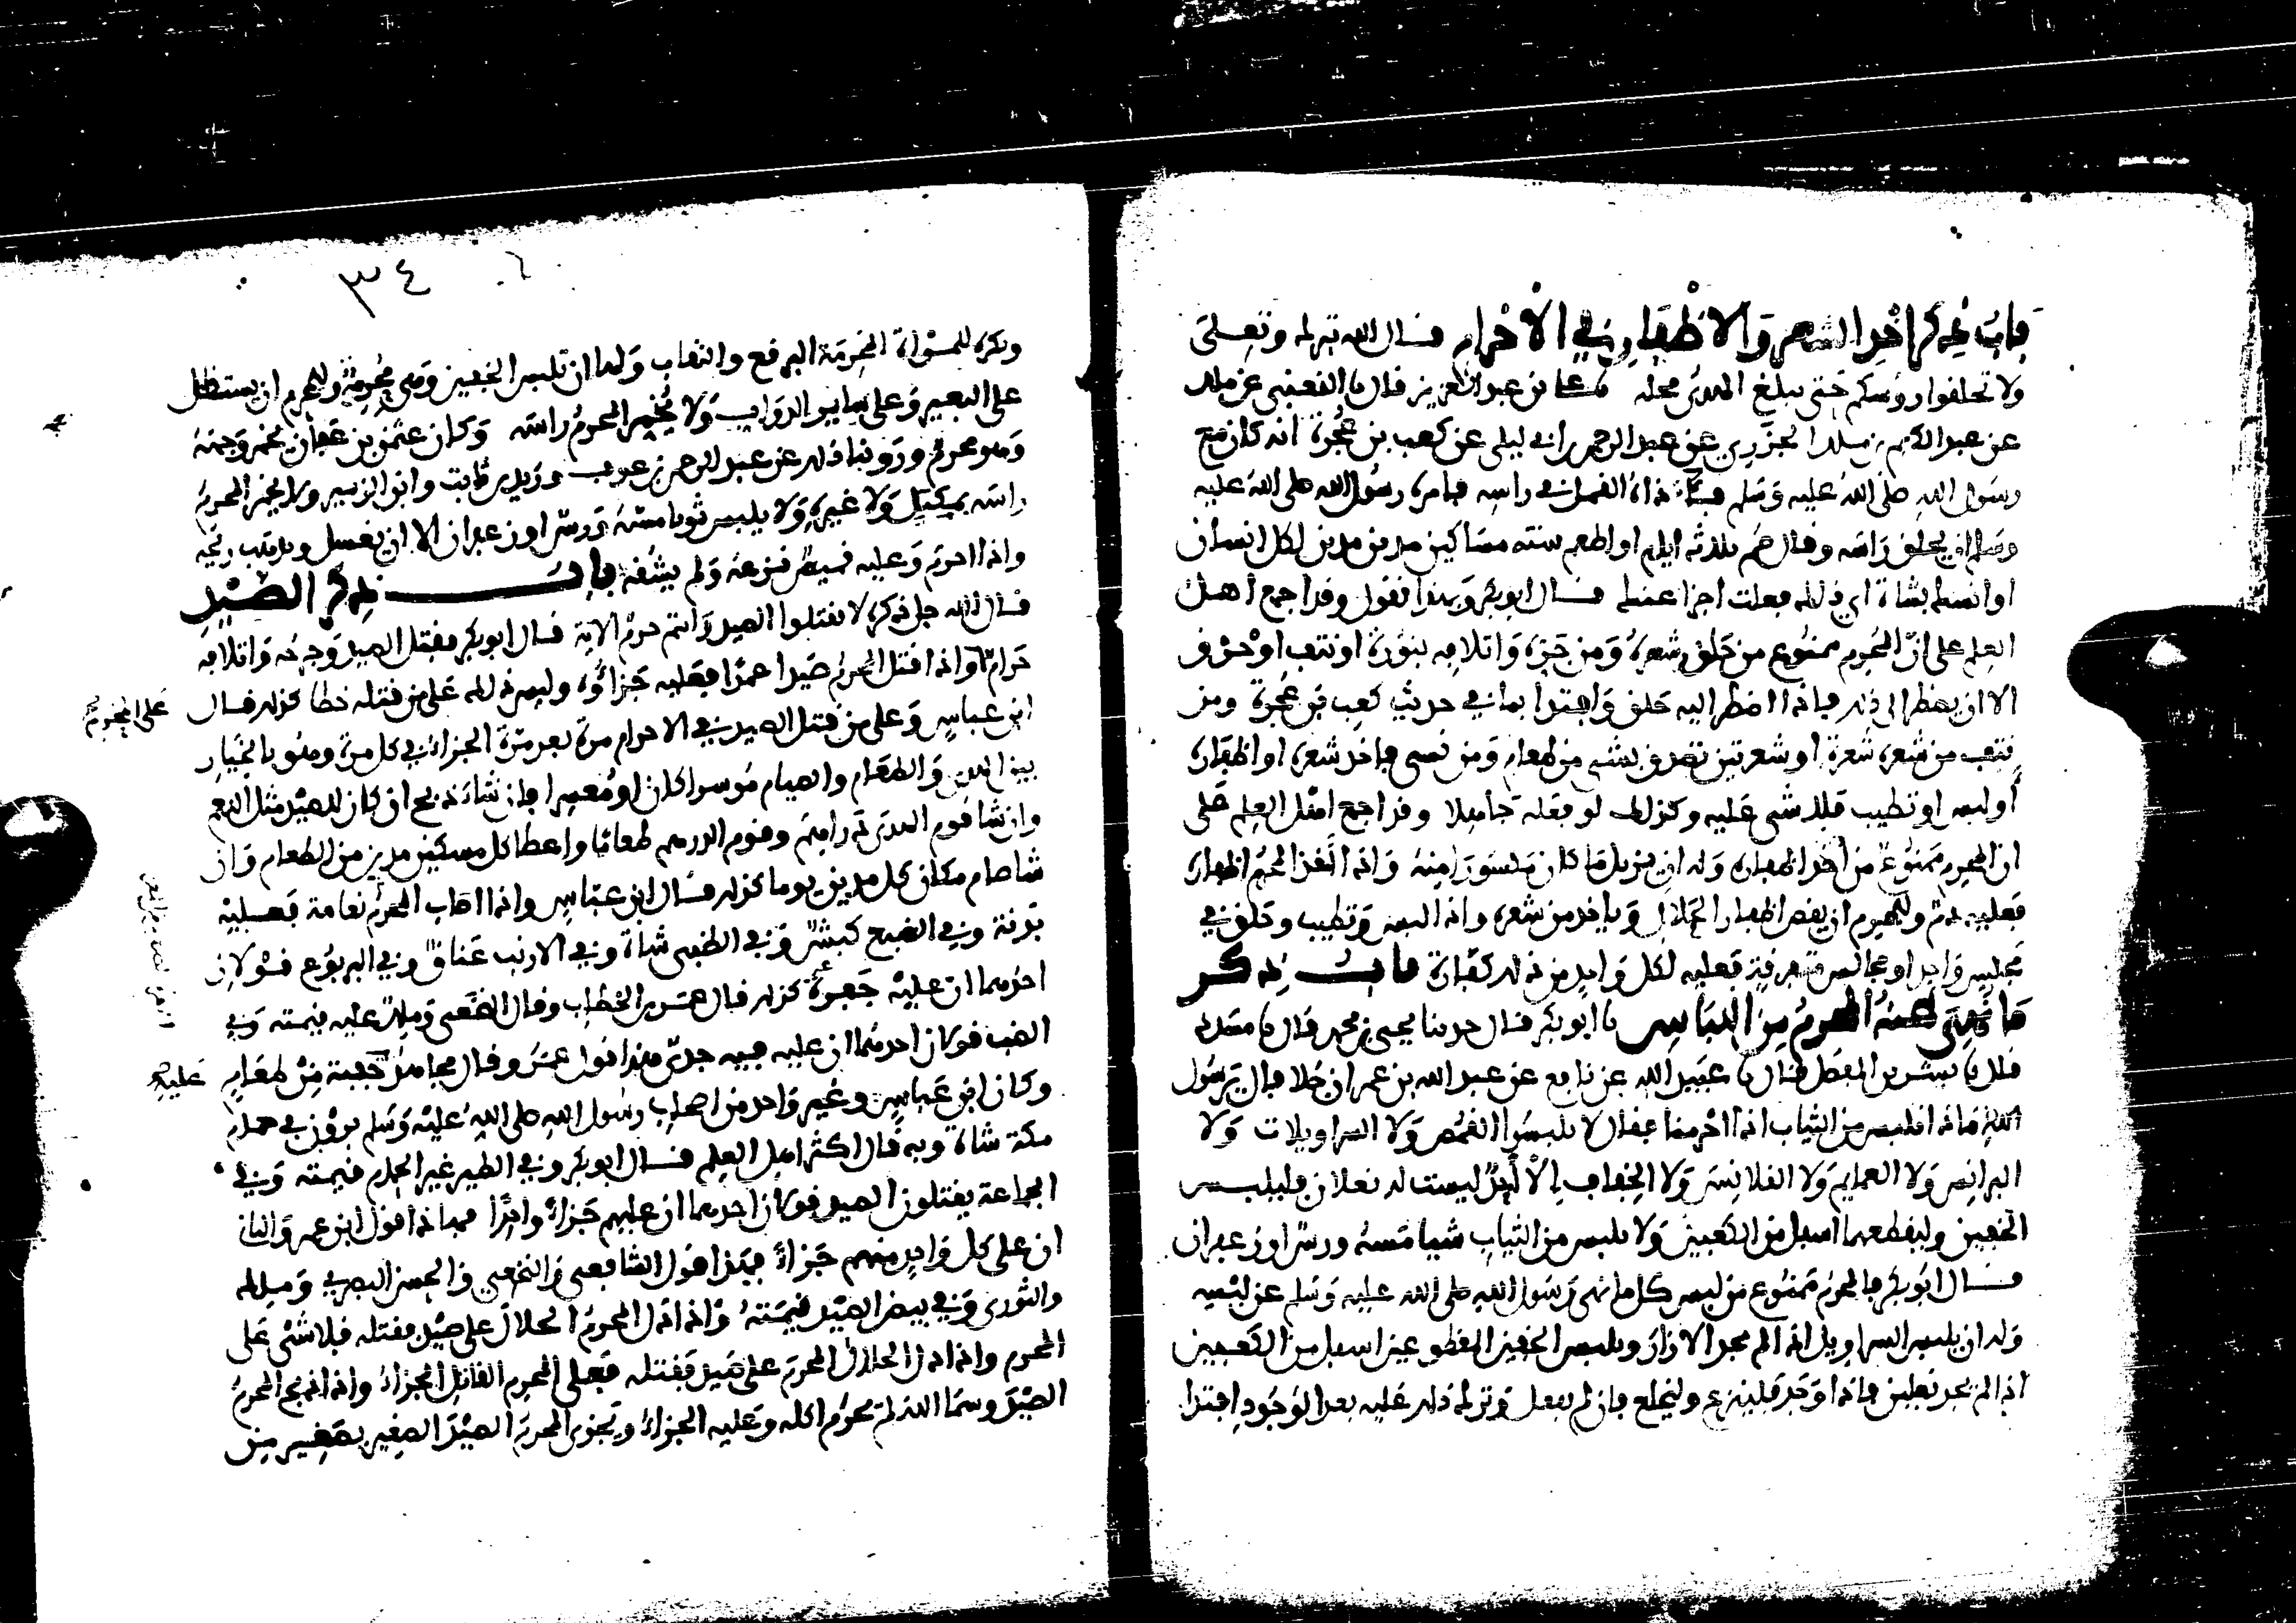 باب ذكر اخذ الشعر والاظفار في الاحرام قال الله تبارك وتعلى
ولا تحلفوا روسكم حتى يبلغ الهدي محله نا علي بن عبد العزيز قال نا القعنبي عن ملك
عن عبد الكريم بن ملك الجزري عن عبد الرحمن بن ابي ليلى عن كعب بن عجرة انه كان مع
رسول الله صلى الله عليه وسلم فآذاه القمل في راسه فامره رسول الله صلى الله عليه
وسلم ان يحلق راسه وقال صم ثلاثة ايام او اطعم ستة مساكين مدين مدين لكل انسان
او انسك بشاة اي ذلك فعلت اجزا عنك قال ابو بكر وبهذا نقول وقد اجمع اهل
العلم على ان المحرم ممنوع من حلق شعره ومن جزه واتلافه بنورة او نتف او حرق
الا ان يضطر الى ذلك فاذا اضطر اليه حلق وافتدا بما في حديث كعب بن عجرة ومن
نتف من شعره شعرة او شعرتين تصدق بشي من طعام ومن نسي فاخذ شعره او اظفاره
او لبس او تطيب فلا شي عليه وكذلك لو فعله جاهلا وقد اجمع اهل العلم على
ان المحرم ممنوع من اخذ اظفاره وله ان يزيل ما كان منكسورا منه واذا اخذ المحرم اظفاره
فعليه دم وللمحرم ان يقص اظفار الحلال وياخذ من شعره واذا لبس وتطيب وحلق في
مجلس واحد او مجالس متفرقة فعليه لكل واحد من ذلك كفارة باب ذكر
ما نهي عنه المحرم من اللباس نا ابو بكر قال حدثنا يحيى بن محمد قال نا مسدد
قال نا بشر بن المفضل قال نا عبيد الله عن نافع عن عبد الله بن عمر ان رجلا قال يرسول
الله ماذا نلبس من الثياب اذا احرمنا فقال لا تلبسوا القمص ولا السراويلات ولا
البرانس ولا العمايم ولا القلانس ولا الخفاف الا احد ليست له نعلان فليلبس
الخفين وليقطعهما اسفل من الكعبين ولا يلبس من الثياب شيا مسه ورس او زعفران
قال ابو بكر فالمحرم ممنوع من لبس كل ما نهى رسول الله صلى الله عليه وسلم عن لبسه
وله ان يلبس السراويل اذا لم يجد الازار ويلبس الخفين المقطوعين اسفل من الكعبين
اذا لم يجد نعلين فاذا وجد فلينزع وليخلع فان لم يفعل وترك ذلك عليه بعد الوجود افتدا
٣٤
ويكره للمراة المحرمة البرقع والنقاب ولها ان تلبس الخفين وهي محرمة وللمحرم ان يستظل
على البعير وعلى ساير الدواب ولا يخمر المحرم راسه وكان عثمن بن عفان يخمر وجهه
وهو محرم وروينا ذلك عن عبد الرحمن بن عوف وزيد بن ثابت وابن الزبير ولا يخمر المحرم
راسه بمكتل ولا غيره ولا يلبس ثوبا مسه ورس او زعفران الا ان يغسل ويذهب ريحه
واذا احرم وعليه قميص نزعه ولم يشقه باب ذكر الصيد
قال الله جل ذكره لا تقتلوا الصيد وانتم حرم الاية قال ابو بكر فقتل الصيد وجرحه واتلافه
حرام واذا قتل المحرم صيدا عمدا فعليه جزاؤه وليس ذلك على من قتله خطا كذلك قال
على المحرم
ابن عباس وعلى من قتل الصيد في الاحرام مرة بعد مرة الجزاء في كل مرة وهو بالخيار
بين الهدي والطعام والصيام موسرا كان او معسرا فان شاء ذبح ان كان للصيد مثل النعم
وان شا قوم الهدي دراهم وقوم الدرهم طعاما واعطا كل مسكين مدين من الطعام وان
شا صام مكان كل مدين يوما كذلك قال ابن عباس واذا اصاب المحرم نعامة فعليه
بدنة وفي الضبع كبش وفي الظبي شاة وفي الارنب عناق وفي اليربوع قولان
احدهما ان عليه جفرة كذلك قال عمر بن الخطاب وقال النخعي وملك عليه قيمته وفي
الضب قولان احدهما ان عليه فيه جدي هذا قول عمر وقال مجاهد حفنة من طعام
عليه
وكان ابن عباس وغير واحد من اصحاب رسول الله صلى الله عليه وسلم يرون في حمام
مكة شاة وبه قال اكثر اهل العلم قال ابو بكر وفي الطير غير الحمام قيمته وفي
الجماعة يقتلون الصيد قولان احدهما ان عليهم جزاء واحدا هذا قول ابن عمر والثاني
ان على كل واحد منهم جزاء هذا قول الشافعي والنخعي والحسن البصري وملك
والثوري وفي بيض الصيد قيمته واذا دل المحرم الحلال على صيد فقتله فلا شي على
المحرم واذا دل الحلال المحرم على صيد فقتله فعلى المحرم القاتل الجزاء واذا ذبح المحرم
الصيد وسما الله لم يحرم اكله وعليه الجزاء ويجزي المحرم الصيد الصغير بصغير من